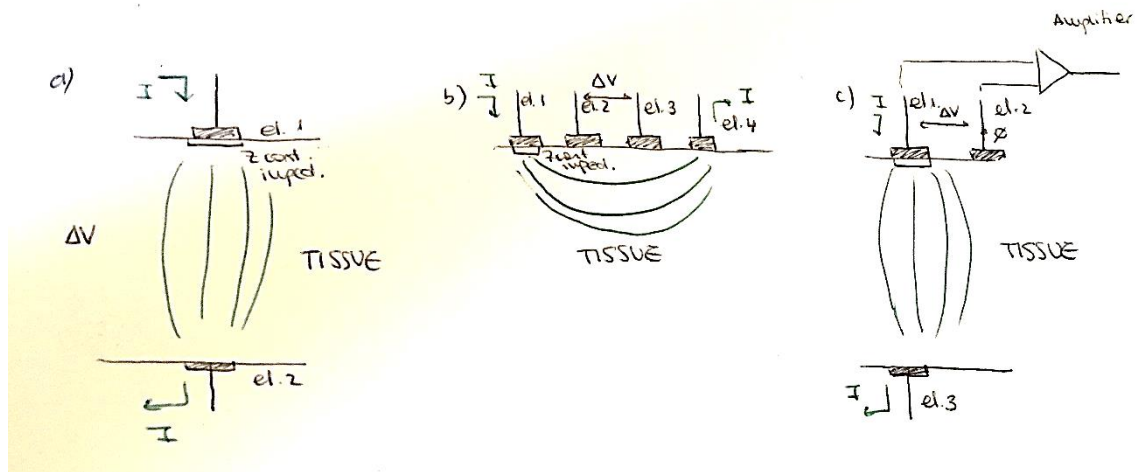 Amplifier
a)
I
el. 1
Z cont.
imped.
ΔV
TISSUE
el. 2
I
b)
I
ΔV
I
el.1
el.2
el.3
el.4
Z cont
imped.
TISSUE
c)
I
el.1
ΔV
el.2
ø
TISSUE
I
el.3